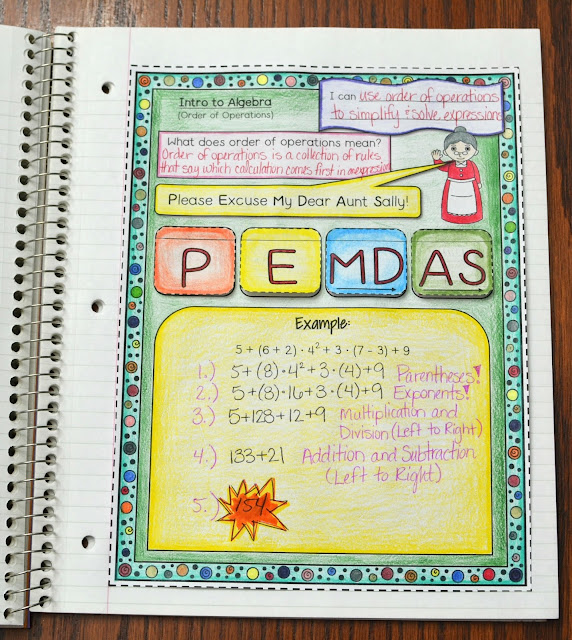 Intro to Algebra
(Order of Operations)
I can use order of operations
to simplify & solve expressions
What does order of operations mean?
Order of operations is a collection of rules
that say which calculation comes first in an expression
Please Excuse My Dear Aunt Sally!
P E MD AS
Example:
5 + (6 + 2) · 4² + 3 · (7 – 3) + 9
1.) 5+(8)·4²+3·(4)+9 Parentheses!
2.) 5+(8)·16+3·(4)+9 Exponents!
3.) 5+128+12+9 Multiplication and
Division (Left to Right)
4.) 133+21 Addition and Subtraction
(Left to Right)
5.) 154